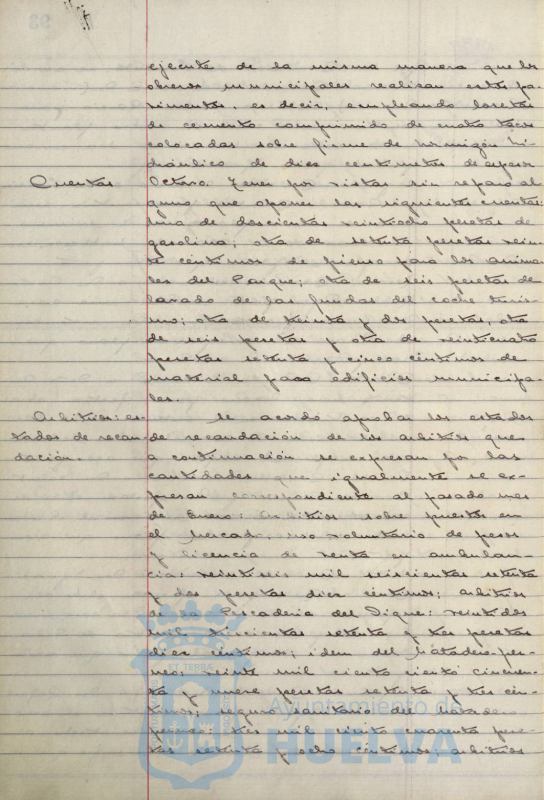 ejecute de la misma manera que los
obreros municipales realizan estos pa-
vimentos, es decir, empleando losetas
de cemento comprimido de cuatro tacos
colocadas sobre firme de hormigón hi-
dráulico de diez centímetros de espesor
Cuentas
Octavo. Tener por vistas sin reparo al
guno que oponer las siguientes cuentas:
Una de doscientas veintiocho pesetas de
gasolina; otra de setenta pesetas vein-
te céntimos de pienso para los anima-
les del Parque; otra de seis pesetas de
lavado de las fundas del coche turis-
mo; otra de treinta y dos pesetas, otra
de seis pesetas y otra de veinticuatro
pesetas setenta y cinco céntimos de
material para edificios municipa-
les.
Arbitrios: es-
tados de recau-
dación.
Se acordó aprobar los estados
de recaudación de los arbitrios que
a continuación se expresan por las
cantidades que igualmente se ex-
presan correspondiente al pasado mes
de Enero: Arbitrios sobre puestos en
el Mercado, uso voluntario de pesos
y licencia de venta en ambulan-
cia: veintiseis mil seiscientas setenta
y dos pesetas diez céntimos; arbitrios
de la Pescadería del Dique: veintidos
mil trescientas setenta y tres pesetas
diez céntimos; idem del Matadero per-
neo: veinte mil ciento ciento cincuen-
ta y nueve pesetas setenta y tres cén-
timos; seguro sanitario del Matadero
perneo: tres mil ciento cuarenta pese-
tas setenta y ocho céntimos; arbitrios
ET TERRAE
Ayuntamiento de
HUELVA